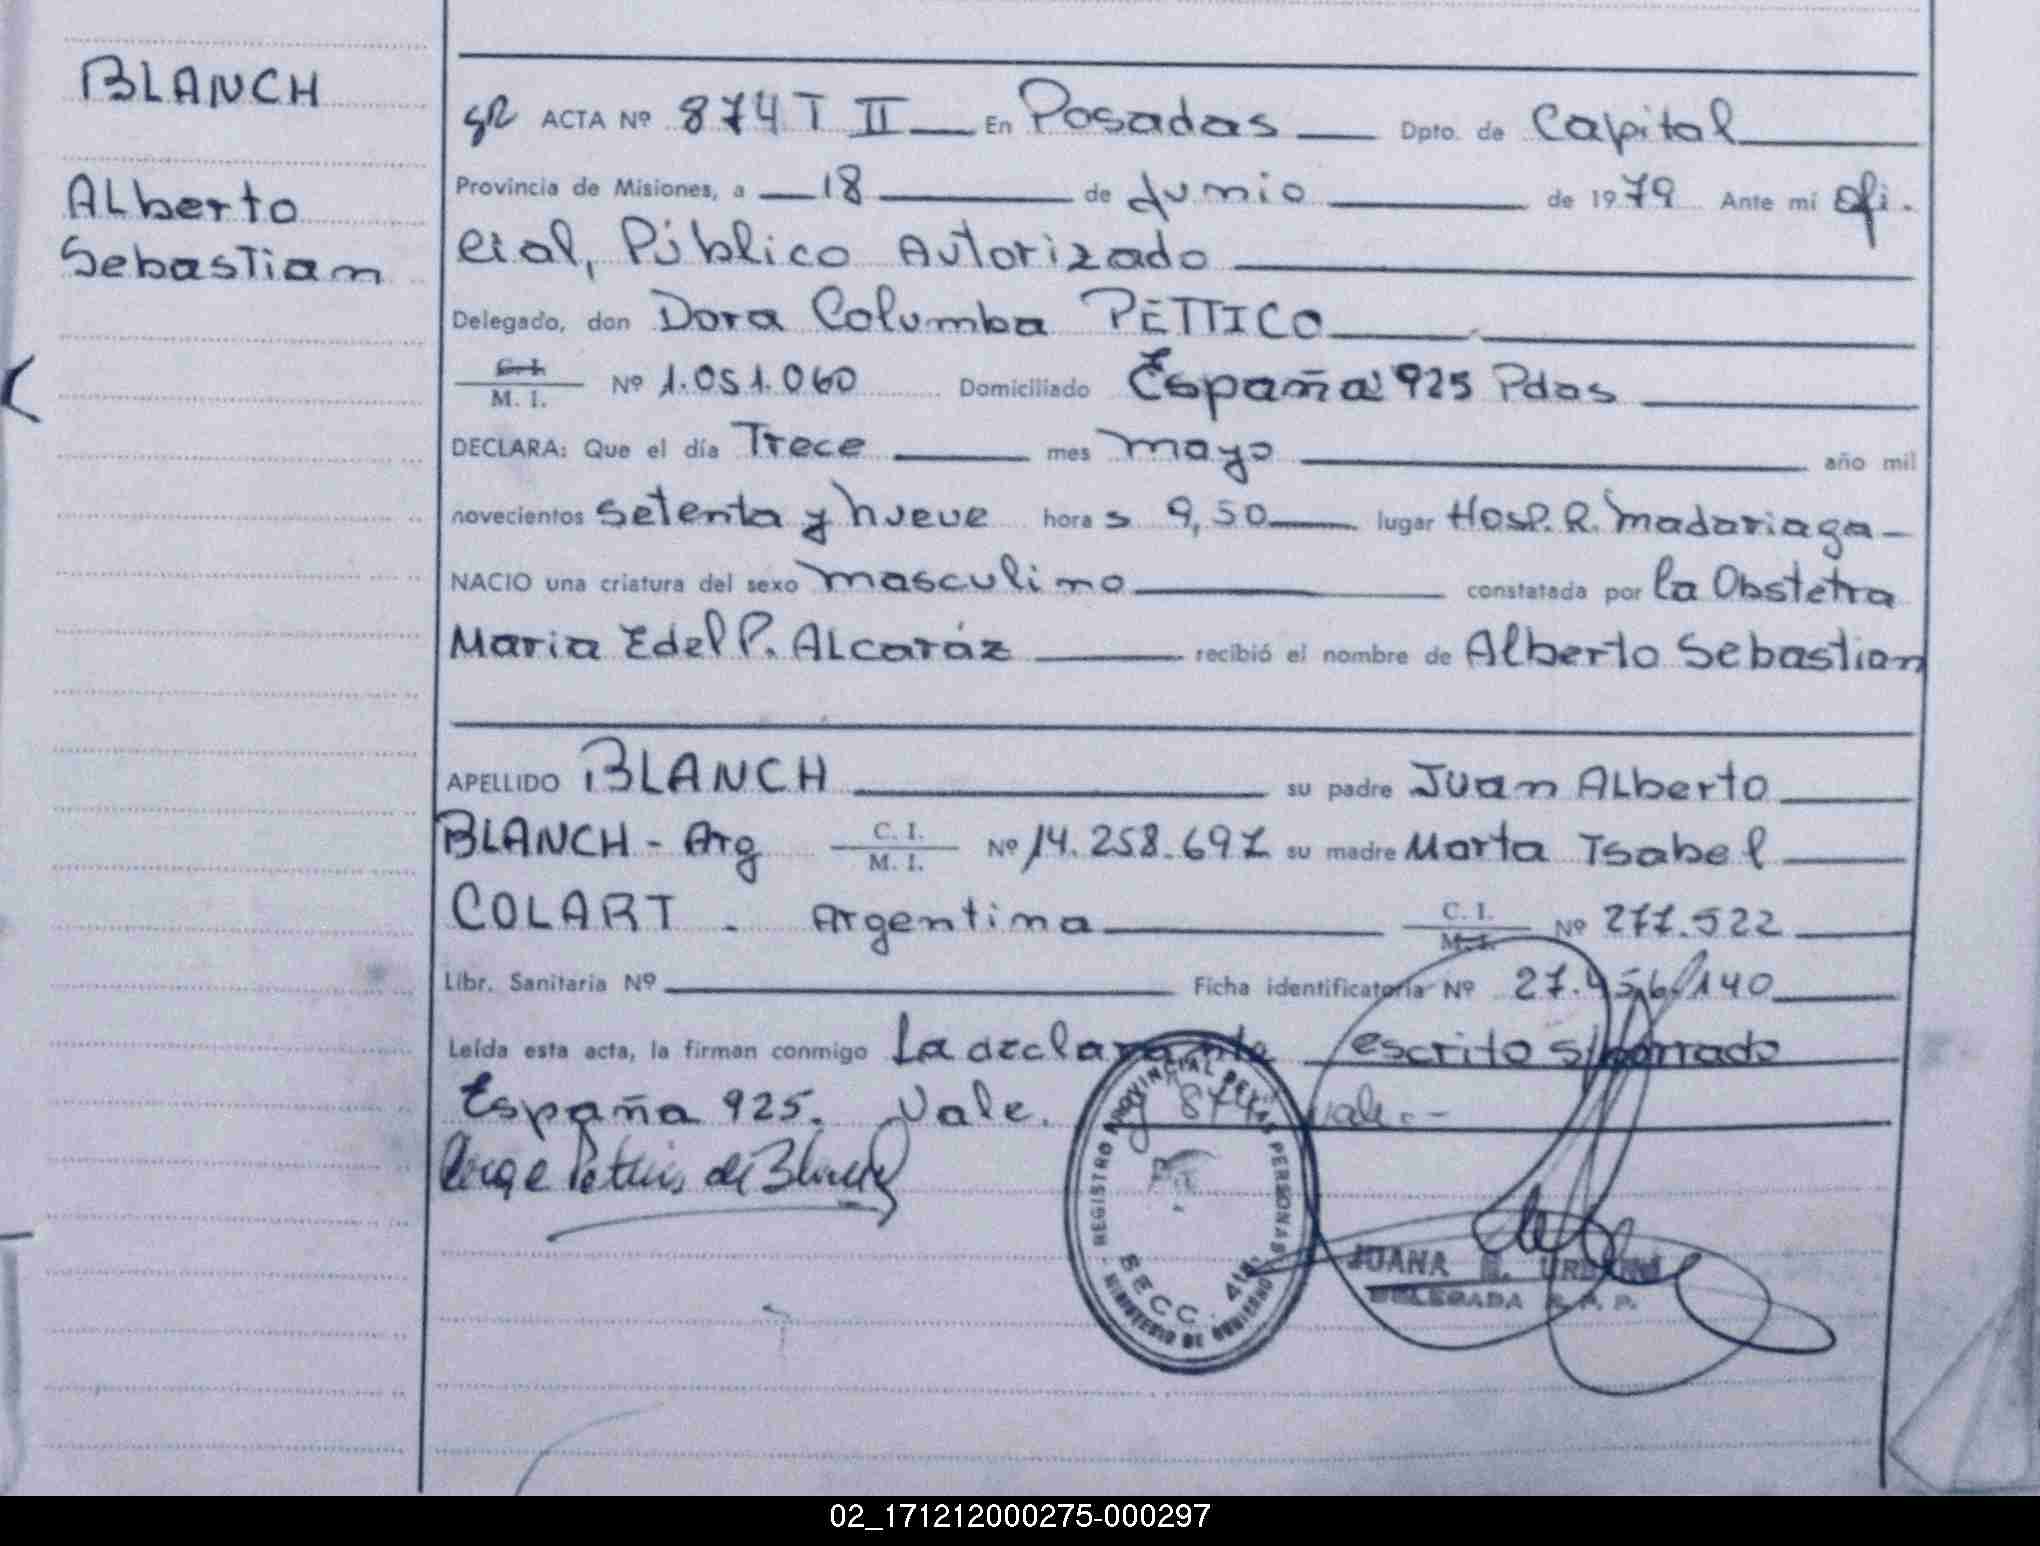 BLANCH
Alberto
Sebastian
ACTA Nº 874 T II En Posadas Dpto. de Capital
Provincia de Misiones, a 18 de Junio de 1979 Ante mí Ofi.
cial, Público Autorizado
Delegado, don Dora Columba PETTICO
C. I. / M. I. Nº 1.051.060 Domiciliado España 925 Pdas
DECLARA: Que el día Trece mes mayo año mil
novecientos setenta y nueve hora s 9,50 lugar Hosp. R. Madariaga
NACIO una criatura del sexo masculino constatada por la Obstetra
Maria Edel P. Alcaráz recibió el nombre de Alberto Sebastian
APELLIDO BLANCH su padre Juan Alberto
BLANCH - Arg C. I. / M. I. Nº 14.258.697 su madre Marta Isabel
COLART - Argentina C. I. / M. I. Nº 277.522
Libr. Sanitaria Nº Ficha identificatoria Nº 27.456.140
Leída esta acta, la firman conmigo La declarante escrito s/borrado
España 925. Vale. 874 vale.-
REGISTRO PROVINCIAL DE LAS PERSONAS
SECC. 4ta.
MINISTERIO DE GOBIERNO
JUANA
DELEGADA R. P. P.
02_171212000275-000297